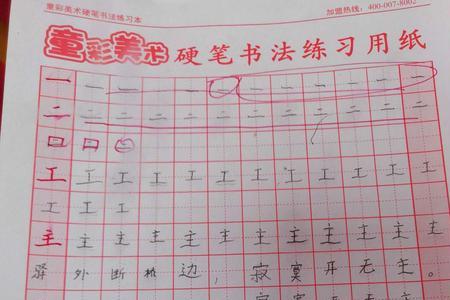 童彩美术硬笔书法练习本 加盟热线：400-007-8002
童彩美术 硬笔书法练习用纸
一 一 一 一 一 一 一 一 一 一 一 一
二 二 二 二 二 二 二 二 二 二 二 二
口 口 口
工 工 工 工 工 工 工 工 工 工 工 工
工 工 工
主 主 主 主 主 主 主 主 主 主 主 主
驿外断桥边，寂寞开无主。
寂寞开无主